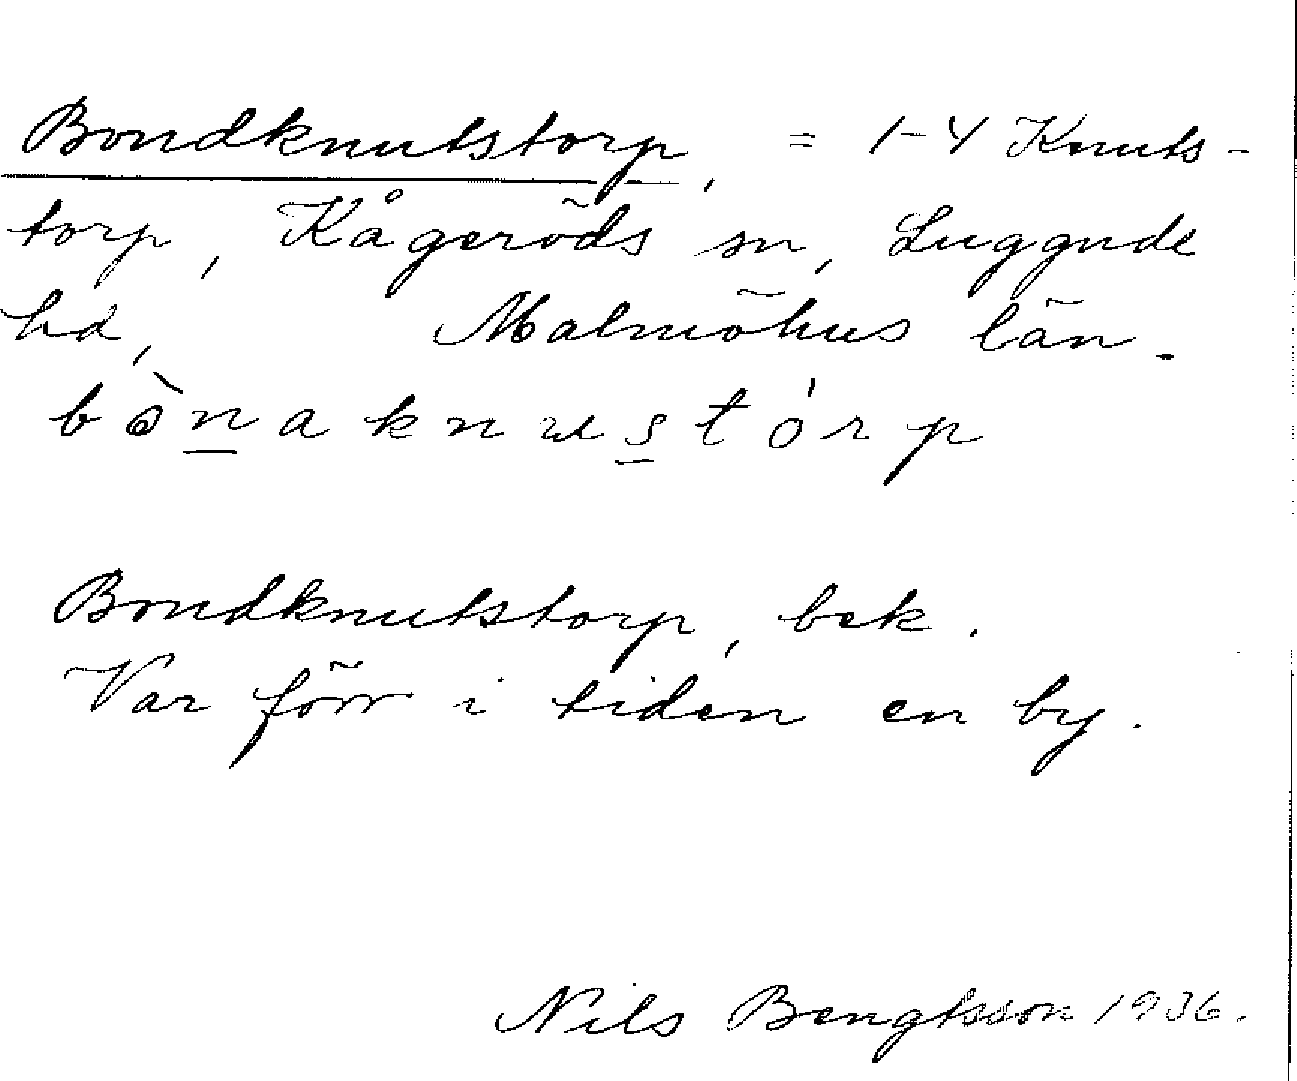 Bondknutstorp, = 1-4 Knuts-
torp, Kågeröds sn, Luggude
hd, Malmöhus län.
bònaknustórp
Bondknutstorp, bek.
Var förr i tiden en by.
Nils Bengtsson 1936.